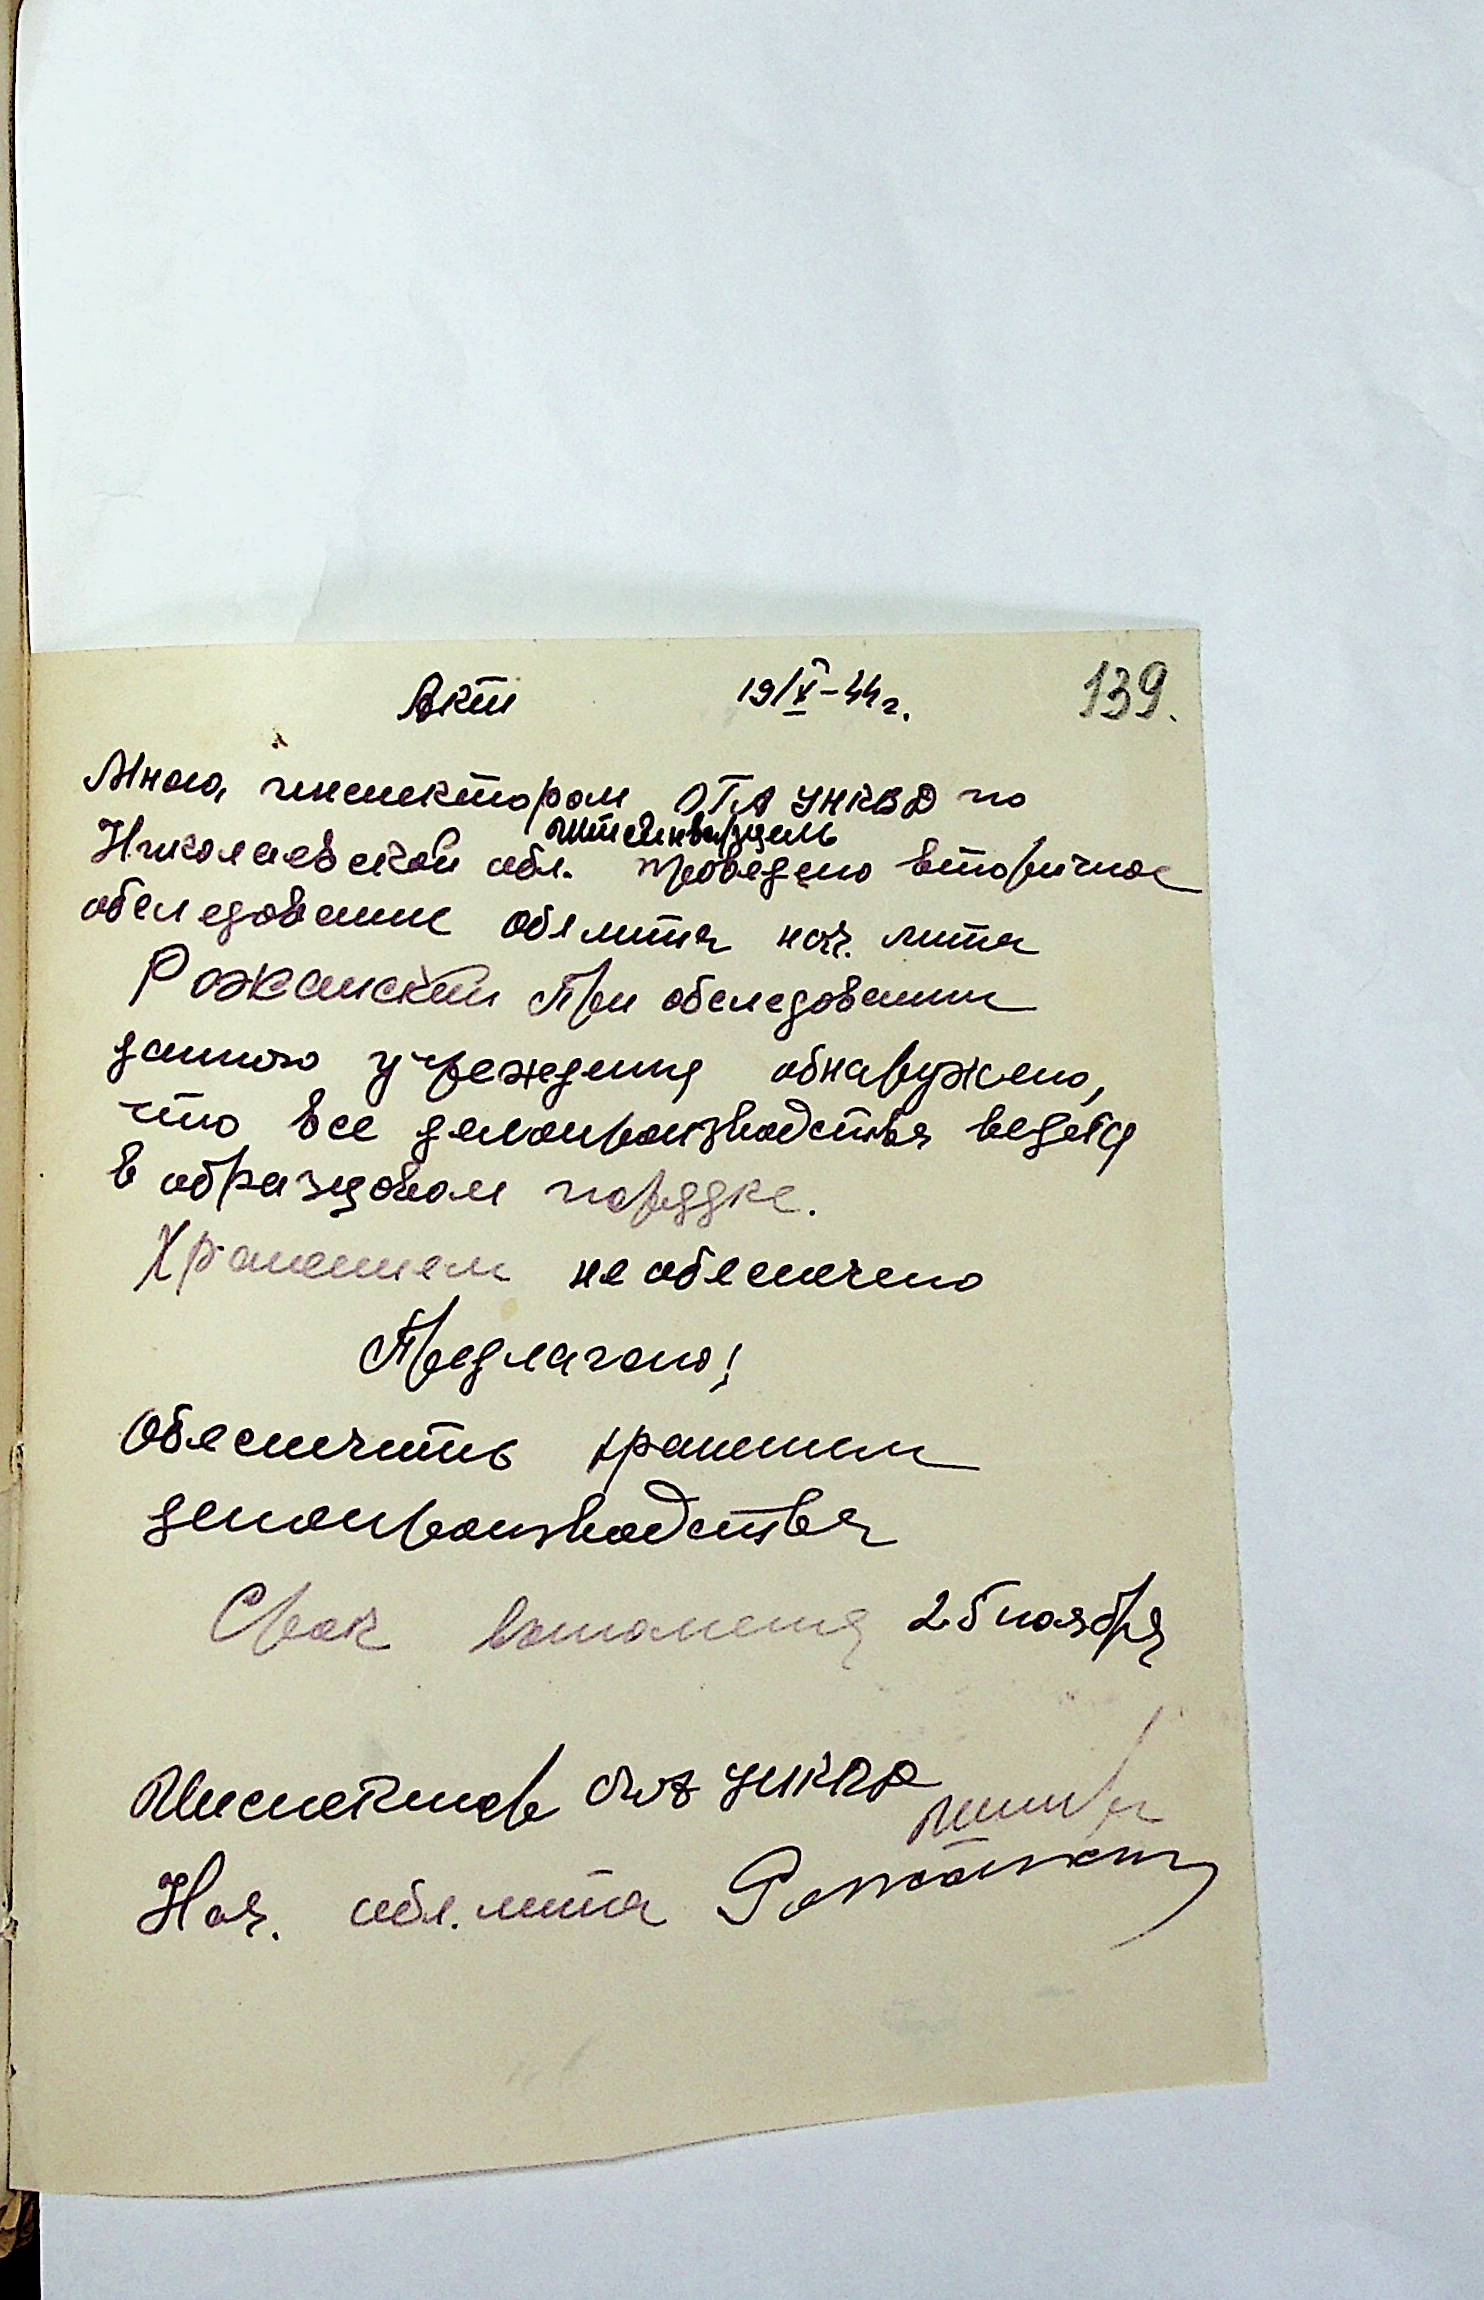 Акт 19/X-44 г. 139.
Мною, инспектором ОГА УНКВД по
Николаевской обл. проведено вторичное
обследование Обллита нач. лита
Рожанский При обследовании
данного учреждения обнаружено,
что все делопроизводства ведется
в образцовом порядке.
Хранением не обеспечено
Предлагаю!
Обеспечить хранением
делопроизводства
Срок выполнения 25 ноября
Инспектор ОГА УНКВД
Нач. обл. лита Рожанский